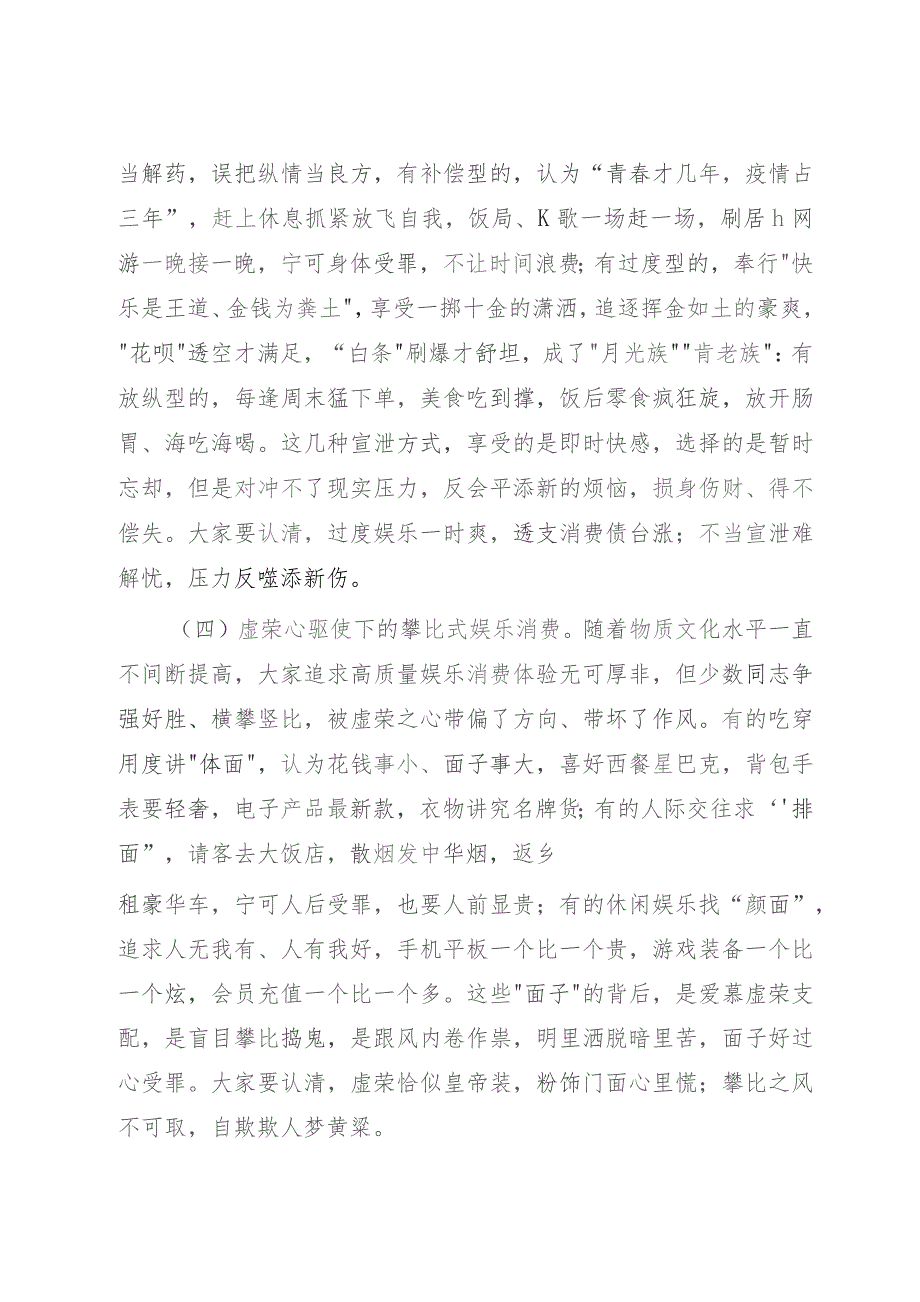 当解药，误把纵情当良方，有补偿型的，认为“青春才几年，疫情占
三年”，赶上休息抓紧放飞自我，饭局、K歌一场赶一场，刷居h网
游一晚接一晚，宁可身体受罪，不让时间浪费；有过度型的，奉行"快
乐是王道、金钱为粪土"，享受一掷十金的潇洒，追逐挥金如土的豪爽，
"花呗"透空才满足，“白条"刷爆才舒坦，成了"月光族""肯老族"：有
放纵型的，每逢周末猛下单，美食吃到撑，饭后零食疯狂旋，放开肠
胃、海吃海喝。这几种宣泄方式，享受的是即时快感，选择的是暂时
忘却，但是对冲不了现实压力，反会平添新的烦恼，损身伤财、得不
偿失。大家要认清，过度娱乐一时爽，透支消费债台涨；不当宣泄难
解忧，压力反噬添新伤。
（四）虚荣心驱使下的攀比式娱乐消费。随着物质文化水平一直
不间断提高，大家追求高质量娱乐消费体验无可厚非，但少数同志争
强好胜、横攀竖比，被虚荣之心带偏了方向、带坏了作风。有的吃穿
用度讲"体面"，认为花钱事小、面子事大，喜好西餐星巴克，背包手
表要轻奢，电子产品最新款，衣物讲究名牌货；有的人际交往求‘'排
面”，请客去大饭店，散烟发中华烟，返乡
租豪华车，宁可人后受罪，也要人前显贵；有的休闲娱乐找“颜面”，
追求人无我有、人有我好，手机平板一个比一个贵，游戏装备一个比
一个炫，会员充值一个比一个多。这些"面子"的背后，是爱慕虚荣支
配，是盲目攀比捣鬼，是跟风内卷作祟，明里洒脱暗里苦，面子好过
心受罪。大家要认清，虚荣恰似皇帝装，粉饰门面心里慌；攀比之风
不可取，自欺欺人梦黄粱。